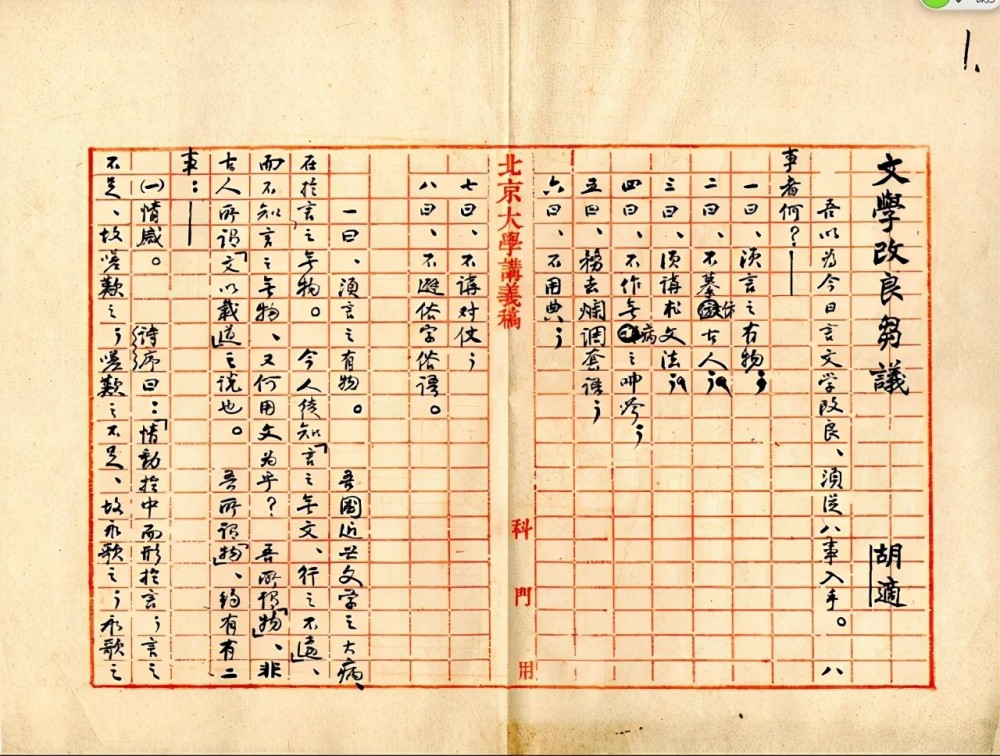 1.
文學改良芻議
胡適
吾以为今日言文学改良、須從八事入手。八
事者何？——
一曰、須言之有物；
二曰、不摹仿古人；
三曰、須講求文法；
四曰、不作无病之呻吟；
五曰、務去爛調套語；
六曰、不用典；
北京大學講義稿
科門用
七曰、不講对仗；
八曰、不避俗字俗语。
一曰、須言之有物。吾國近世文学之大病、
在於言之无物。今人徒知「言之无文、行之不遠」、
而不知言之无物、又何用文为乎？吾所谓「物」、非
古人所谓「文以載道」之说也。吾所谓「物」、約有二
事：——
(一)情感。诗序曰：「情動於中而形於言；言之
不足、故嗟歎之；嗟歎之不足、故永歌之；永歌之